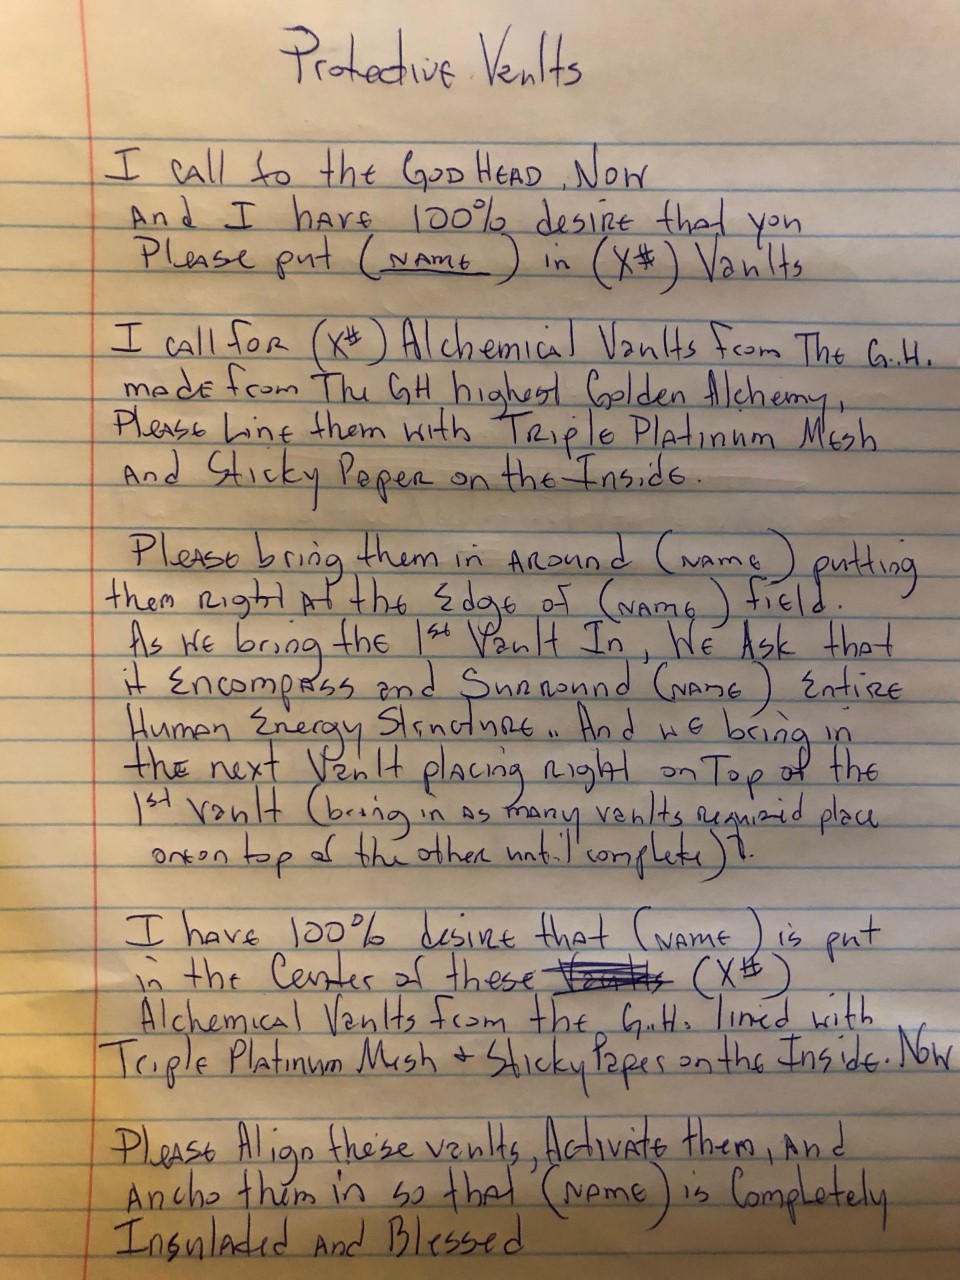 Protective Vaults
I call to the GOD HEAD, Now
And I have 100% desire that you
Please put (NAME) in (X#) Vaults
I call for (X#) Alchemical Vaults from The G.H.
made from The GH highest Golden Alchemy,
Please Line them with Triple Platinum Mesh
And Sticky Paper on the Inside.
Please bring them in Around (NAME) putting
them Right At the Edge of (NAME) field.
As we bring the 1st Vault In, We Ask that
it Encompass and Surround (NAME) Entire
Human Energy Structure.. And we bring in
the next Vault placing Right on Top of the
1st Vault (bring in as many vaults requried place
oneon top of the other until complete)
I have 100% desire that (NAME) is put
in the Center of these (X#)
Alchemical Vaults from the G.H. lined with
Triple Platinum Mesh + Sticky Paper on the Inside. Now
Please Align these vaults, Activate them, And
Ancho them in so that (NAME) is Completely
Insuladed And Blessed